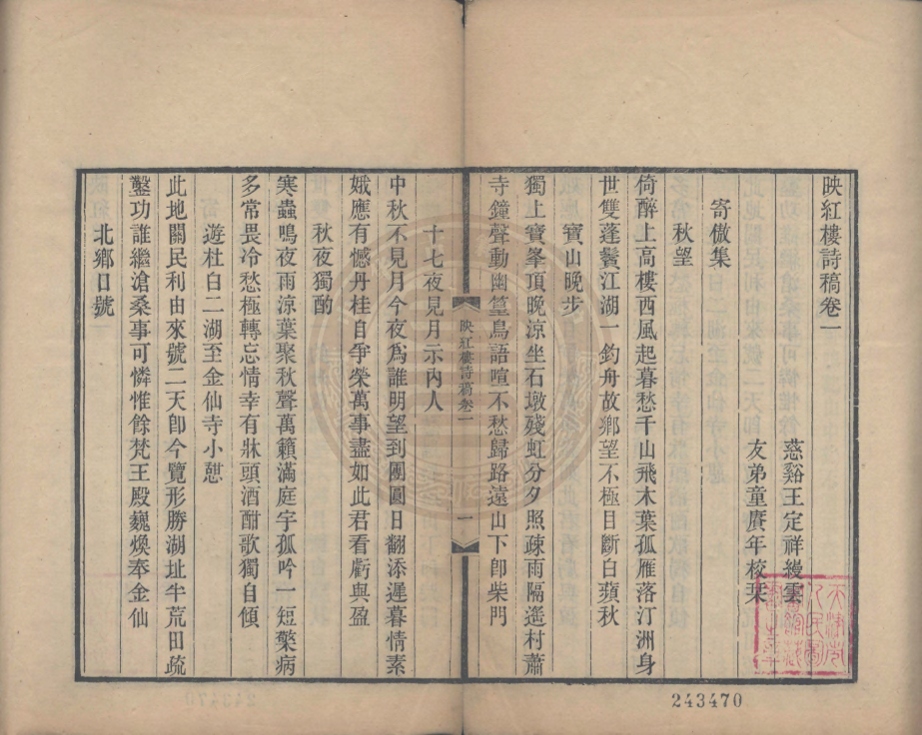 映紅樓詩稿卷一
慈谿王定祥縵雲
友弟童賡年校栞
寄傲集
秋望
倚醉上高樓西風起暮愁千山飛木葉孤雁落汀洲身
世雙蓬鬢江湖一釣舟故鄉望不極目斷白蘋秋
寶山晚步
獨上寶峯頂晚涼坐石墩殘虹分夕照疎雨隔遙村蕭
寺鐘聲動幽篁鳥語喧不愁歸路遠山下卽柴門
映紅樓詩稿卷一
一
十七夜見月示內人
中秋不見月今夜爲誰明望到團圓日翻添遲暮情素
娥應有憾丹桂自爭榮萬事盡如此君看虧與盈
秋夜獨酌
寒蟲鳴夜雨涼葉聚秋聲萬籟滿庭宇孤吟一短檠病
多常畏冷愁極轉忘情幸有牀頭酒酣歌獨自傾
遊杜白二湖至金仙寺小憇
此地關民利由來號二天卽今覽形勝湖址半荒田疏
鑿功誰繼滄桑事可憐惟餘梵王殿巍煥奉金仙
北鄉日號
天津市
人民圖
書館藏
書之章
243470